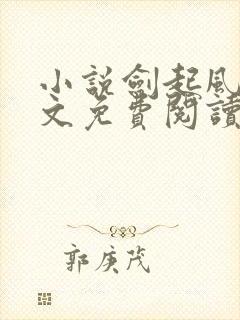 小説劍起風
文免費閱讀
郭庚茂